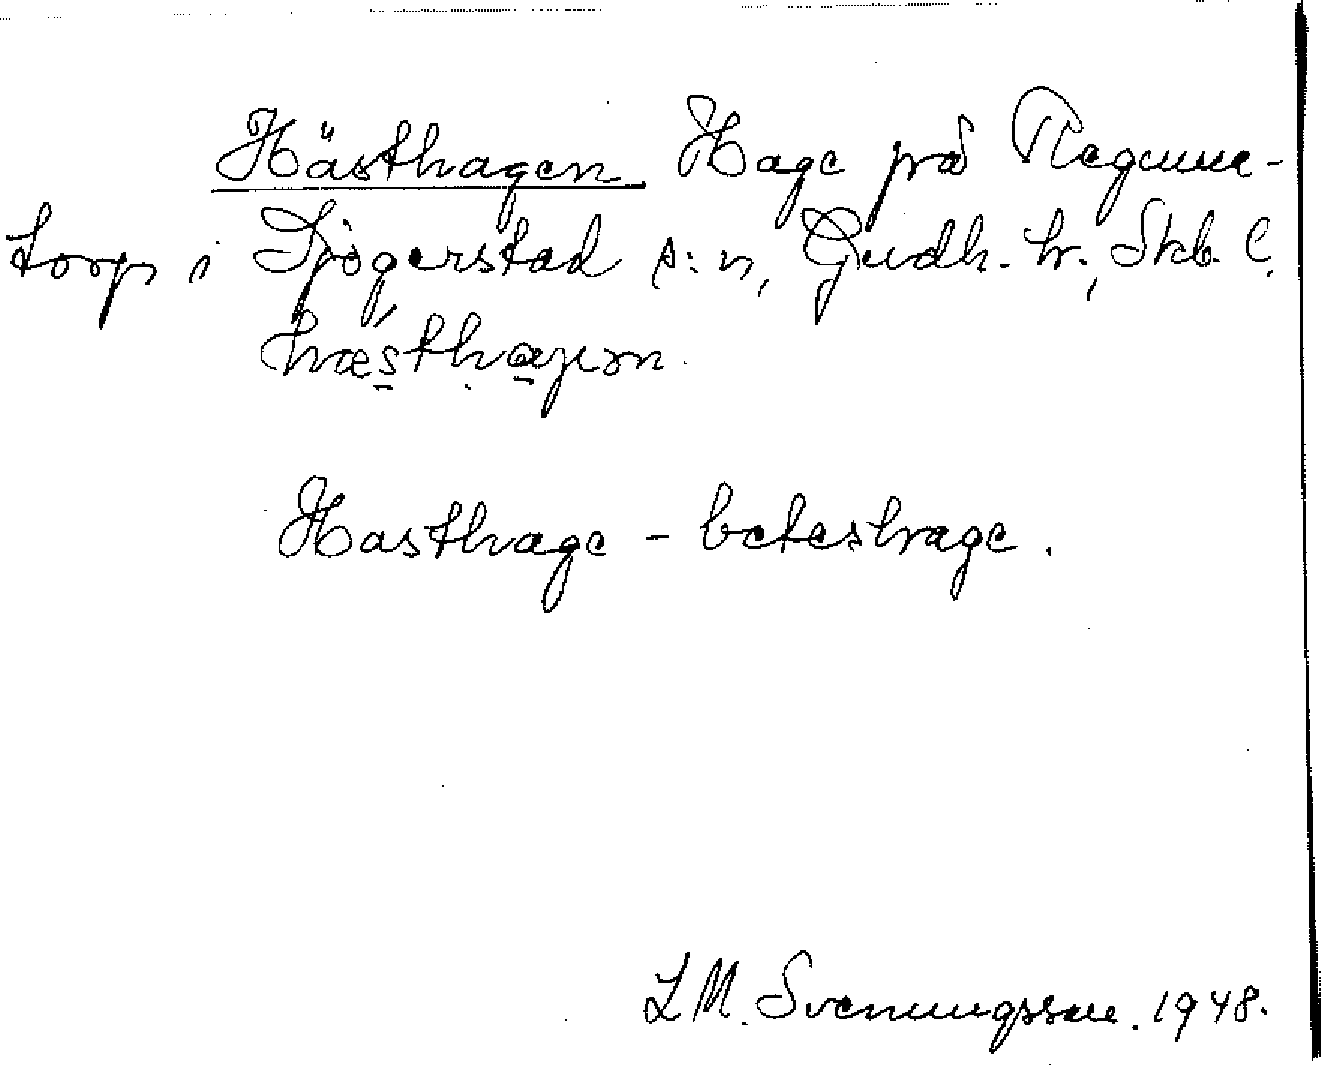 Hästhagen Hage på Regume-
torp i Sjögerstad s:n, Gudh. hr., Skb. l.
hæsthaɡən.
Hasthage - beteshage.
L M. Svenungsson. 1948.